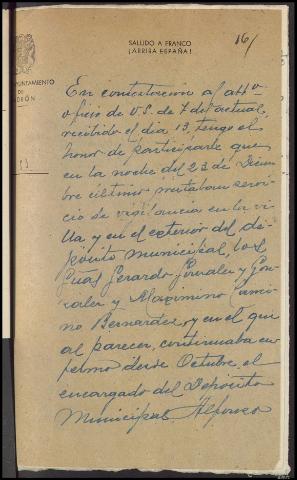 SALUDO A FRANCO
¡ARRIBA ESPAÑA!
16/
AYUNTAMIENTO
DE
PADRÓN
En contestación al atto
oficio de V.S. de 7 del actual,
recibido el día 13, tengo el
honor de participarle que
en la noche del 23 de Diciem
bre último prestaban servi
cio de vigilancia en la vi
lla y en el exterior del de
pósito municipal, los
Guas Gerardo González y Gon
zález y Maximino Cami
no Bernardez, y en el que
al parecer, continuaba en
fermo desde Octubre, el
encargado del Depósito
Municipal Alfonso